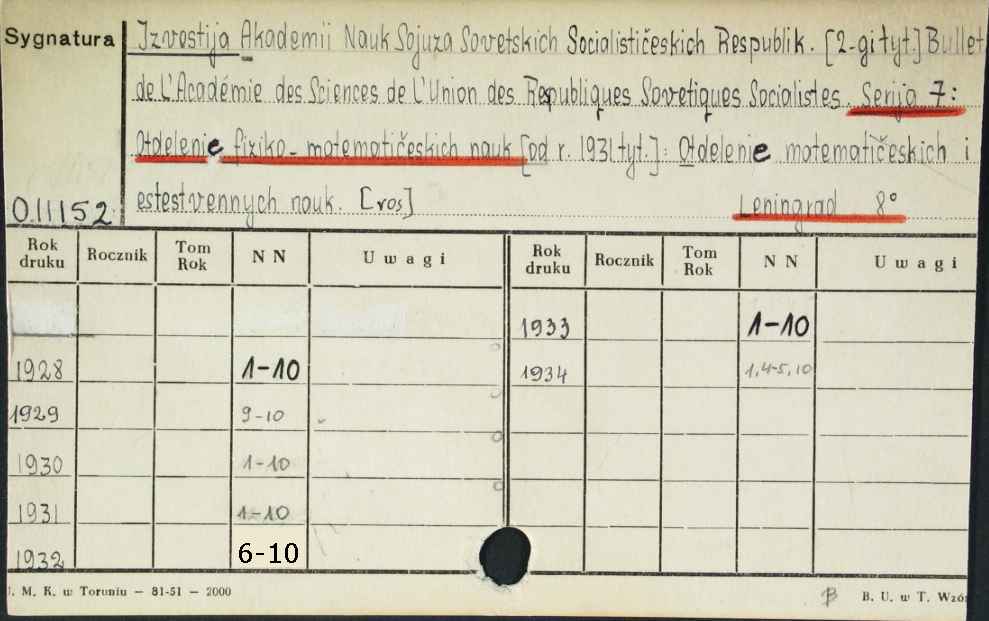 Sygnatura
Izvestija Akademii Nauk Sojuza Sovetskich Socialističeskich Respublik. [2-gi tyt.] Bullet
de L'Académie des Sciences de L'Union des Republiques Sovetiques Socialistes. Serija 7:
Otdelenie fiziko-matematičeskich nauk [od r. 1931 tyt.]: Otdelenie matematičeskich i
estestvennych nauk. [ros] Leningrad 8°
011152
Rok druku Rocznik Tom Rok NN Uwagi Rok druku Rocznik Tom Rok NN Uwagi
1933 1-10
1928 1-10 1934 1,4-5,10
1929 9-10
1930 1-10
1931 1-10
1932 6-10
. M. K. w Toruniu – 81-51 – 2000 B B. U. w T. Wzó